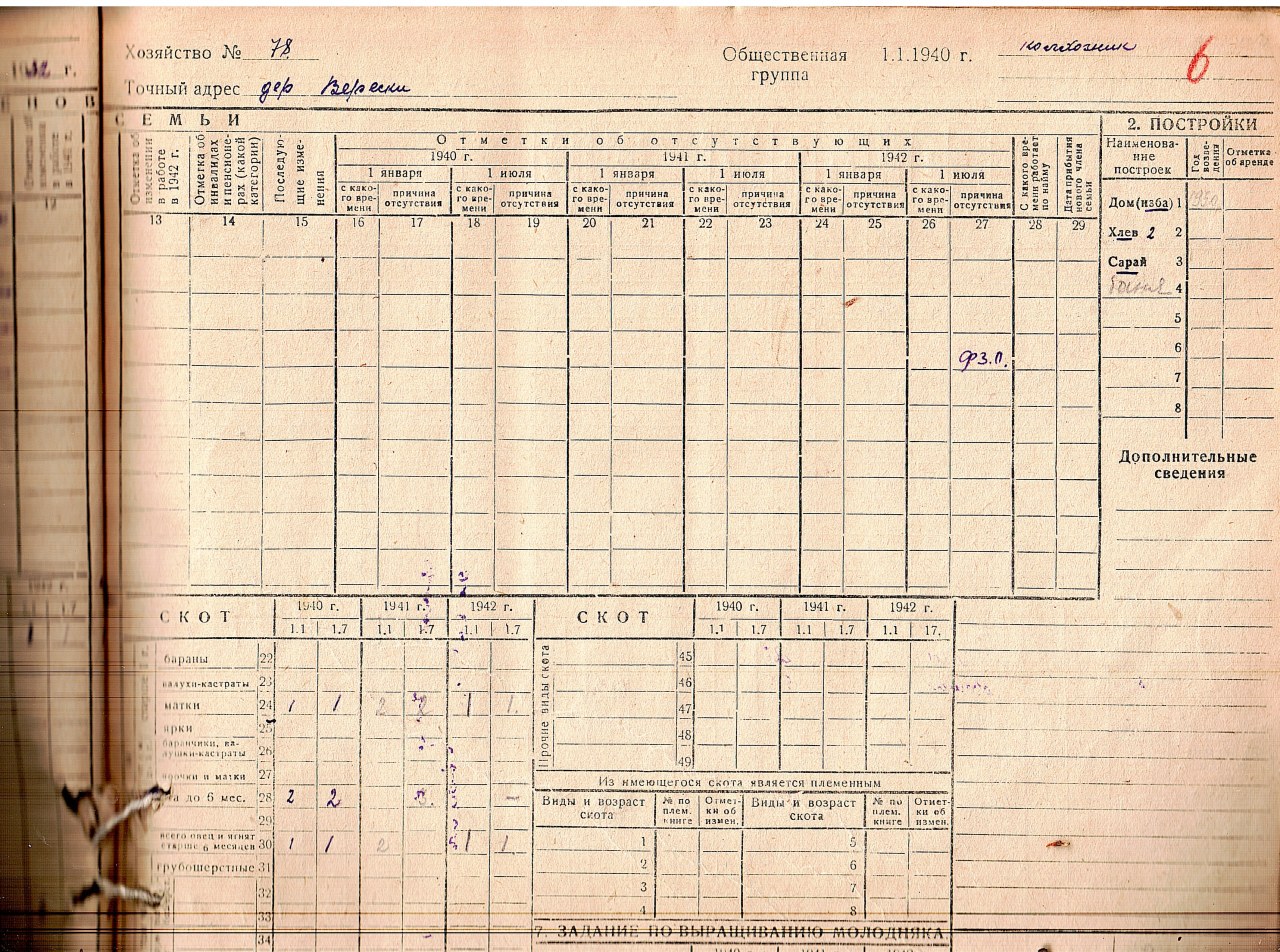 Хозяйство № 78.
Общественная группа 1.1.1940 г. колхозник
6
Точный адрес дер Верески
1942 г.
Е Н О В
12
СЕМЬИ
Отметка об изменении в работе в 1942 г.
Отметка об инвалидах и пенсионерах (какой категории)
Последующие изменения
Отметки об отсутствующих
1940 г. 1941 г. 1942 г.
1 января 1 июля 1 января 1 июля 1 января 1 июля
с какого времени причина отсутствия с какого времени причина отсутствия с какого времени причина отсутствия с какого времени причина отсутствия с какого времени причина отсутствия с какого времени причина отсутствия
С какого времени работает по найму
Дата прибытия нового члена семьи
13 14 15 16 17 18 19 20 21 22 23 24 25 26 27 28 29
ФЗ.О.
2. ПОСТРОЙКИ
Наименование построек
Год возведения
Отметка об аренде
Дом (изба) 1 1930
Хлев 2 2
Сарай 3
баня 4
5
6
7
8
Дополнительные сведения
СКОТ 1940 г. 1941 г. 1942 г.
1.1 1.7 1.1 1.7 1.1 1.7
бараны 22
валухи-кастраты 23
матки 24 1 1 2 2 1 1.
ярки 25
баранчики, валушки-кастраты 26
ярочки и матки 27
до 6 мес. 28 2 2 –
29
всего овец и ягнят старше 6 месяцев 30 1 1 2 1 1
грубошерстные 31
32
33
34
СКОТ 1940 г. 1941 г. 1942 г.
1.1 1.7 1.1 1.7 1.1 17.
Прочие виды скота
45
46
47
48
49
Из имеющегося скота является племенным
Виды и возраст скота № по плем. книге Отметки об измен. Виды и возраст скота № по плем. книге Отметки об измен.
1 5
2 6
3 7
4 8
7. ЗАДАНИЕ ПО ВЫРАЩИВАНИЮ МОЛОДНЯКА